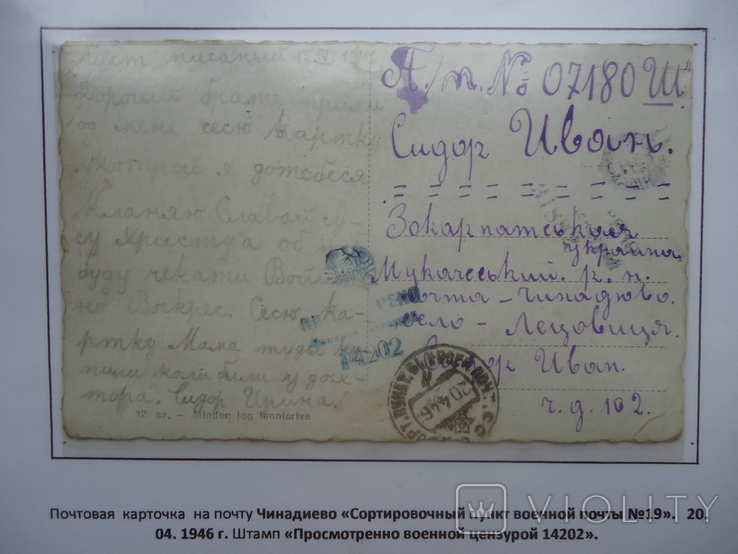 Лист писаный 15 IV 1946
Дорогий брате прийми
од мене сесю картку
укотрой я дотебеся
кланяю Славай Су-
су Христу а об
буду чекати Вой
но Воскрес. Сесю ка-
ртку Мама туды ку-
пили коли были у докт-
тора. Сидор Ирина.
12. sz. – feladen jog fenntartva
П/п. № 07180 "Ш"
Сидор Иван.
Закарпатськая
україна
Мукачеський. р. н.
почта – Чинадюво.
село – Лецовиця.
Сидор Иван.
ч. д. 102.
14202
20.4.46
Почтовая карточка на почту Чинадиево «Сортировочный пункт военной почты №19». 20.
04. 1946 г. Штамп «Просмотренно военной цензурой 14202».
VIOLITY